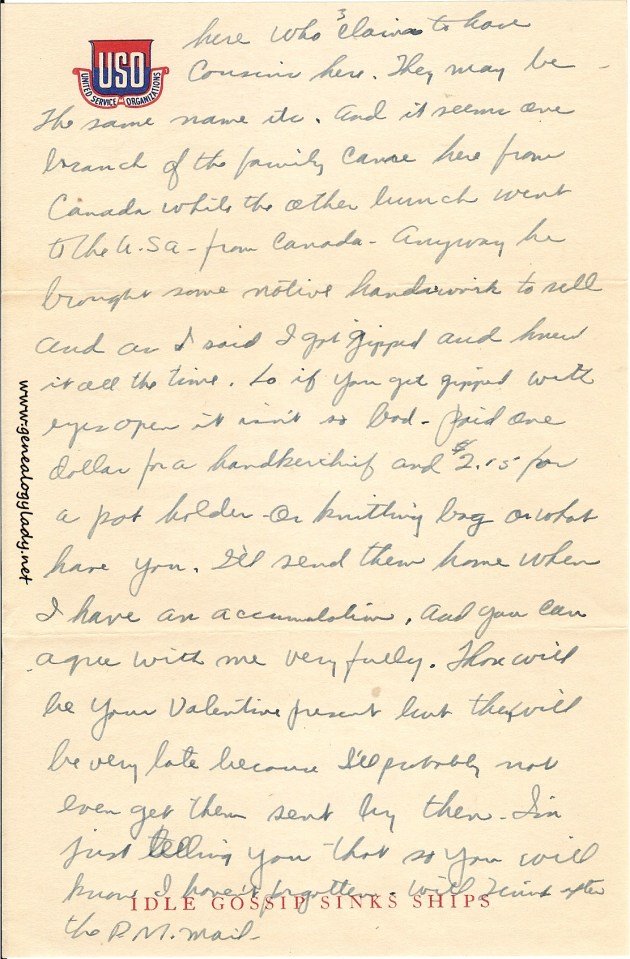 USO
UNITED SERVICE ORGANIZATIONS
3
here who claims to have
Cousins here. They may be -
the same name etc. And it seems one
branch of the family came here from
Canada while the other bunch went
to the U.S.A - from Canada - Anyway he
brought some native handiwork to sell
and as I said I got gipped and knew
it all the time. So if you get gipped with
eyes open it isn't so bad - Paid one
dollar for a handkerchief and $2.15 for
a pot holder - Or knitting bag or what
have you. I'll send them home when
I have an accumulation. And you can
agree with me very fully. Those will
be your Valentine present but they will
be very late because I'll probably not
even get them sent by then - I'm
just telling you that so you will
know I haven't forgotten. Will finish after
the P.M. mail -
IDLE GOSSIP SINKS SHIPS
www.genealogylady.net